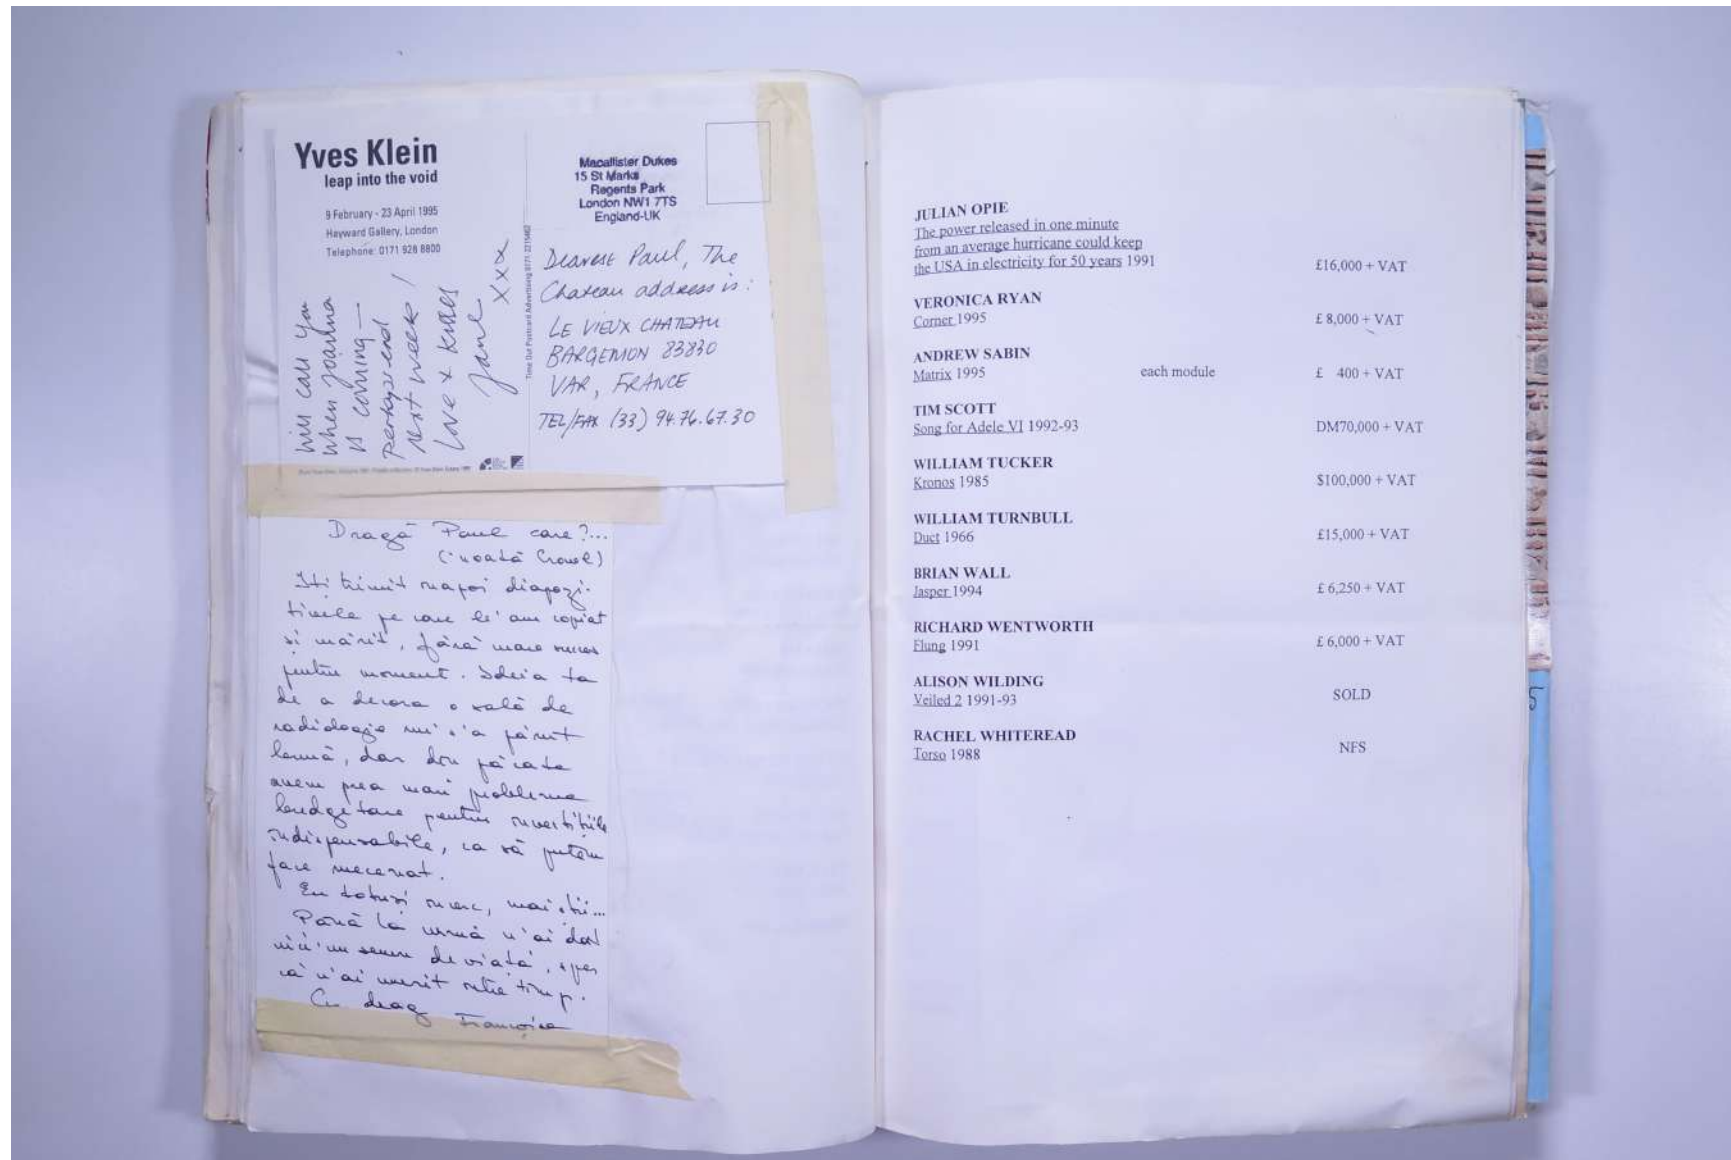 Yves Klein
leap into the void
9 February - 23 April 1995
Hayward Gallery, London
Telephone: 0171 928 8800
Will call you
when Joanna
is coming —
Perhaps end
next week!
Love & kisses
Jane
xxx
Time Out Postcard Advertising 0171
Macallister Dukes
15 St Marks
Regents Park
London NW1 7TS
England-UK
Dearest Paul, The
Chateau address is:
LE VIEUX CHATEAU
BARGEMON 83830
VAR, FRANCE
TEL/FAX (33) 94.76.67.30
Dragă Paul care?...
Iti trimit napoi diapozi-
tivele pe care le'am copiat
si mărit, fără mare succes
pentru moment. Ideia ta
de a decora o sală de
radiologie mi s'a părut
bună, dar din păcate
avem prea mari probleme
budgetare pentru investitiile
indispensabile, ca să putem
face mecenat.
Eu totusi incerc, mai stii...
Până la urmă n'ai dat
nici un semn de viată, sper
că n'ai murit intre timp.
Cu drag Françoise
JULIAN OPIE
The power released in one minute
from an average hurricane could keep
the USA in electricity for 50 years 1991 £16,000 + VAT
VERONICA RYAN
Corner 1995 £ 8,000 + VAT
ANDREW SABIN
Matrix 1995 each module £ 400 + VAT
TIM SCOTT
Song for Adele VI 1992-93 DM70,000 + VAT
WILLIAM TUCKER
Kronos 1985 $100,000 + VAT
WILLIAM TURNBULL
Duct 1966 £15,000 + VAT
BRIAN WALL
Jasper 1994 £ 6,250 + VAT
RICHARD WENTWORTH
Flung 1991 £ 6,000 + VAT
ALISON WILDING
Veiled 2 1991-93 SOLD
RACHEL WHITEREAD
Torso 1988 NFS
5